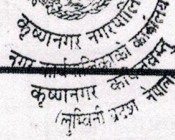 कृष्णनगर नगरपालिका
नगर कार्यपालिकाको कार्यालय
कृष्णनगर कपिलवस्तु
(लुम्बिनी प्रदेश नेपाल)